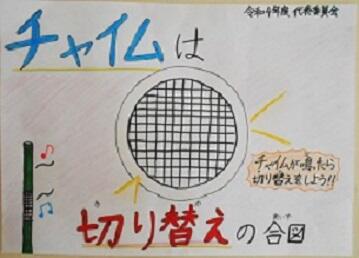 令和4年度 代表委員会
チャイムは
チャイムが鳴ったら
切り替えをしよう!!
切り替えの合図